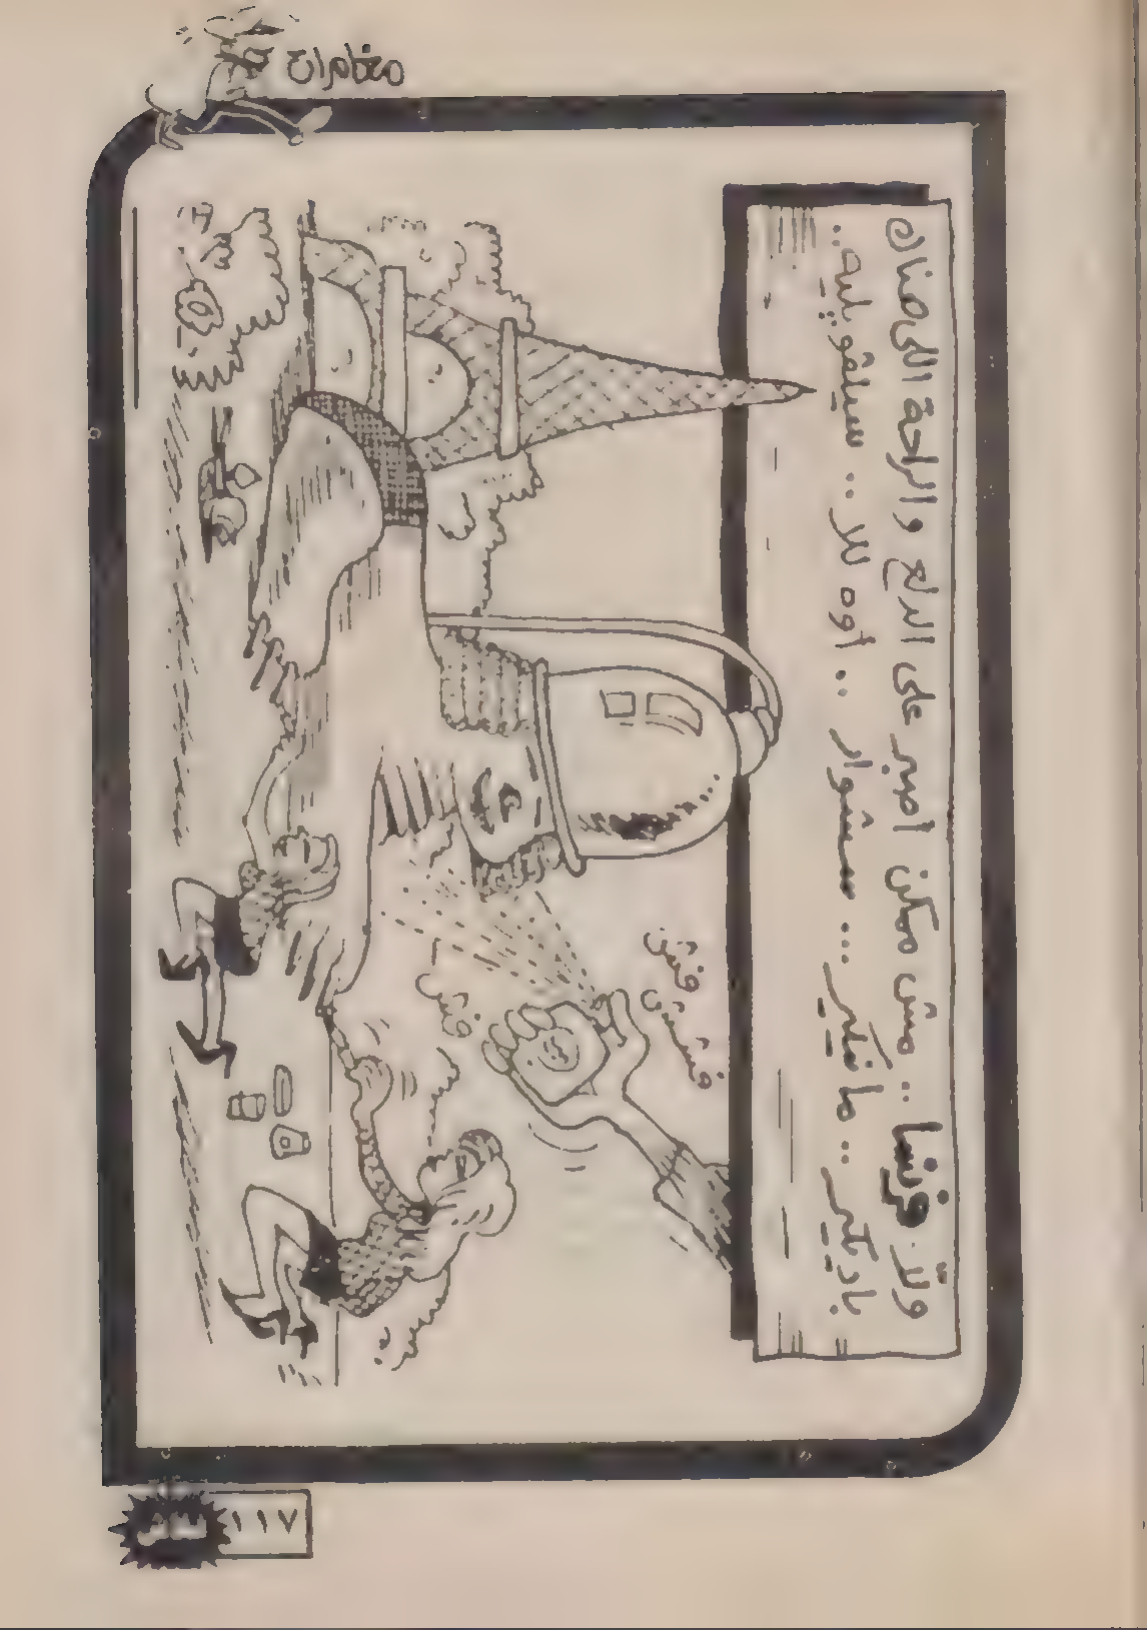 مغامرات
ولاّ فرنسا .. مش ممكن أصبر على الدلع والراحة اللى هناك
باديكير .. مانيكير ... سيشوار .. أوه للا .. سيلڤوپليه ..
فش
فششش
فش
١١٧
فلاش